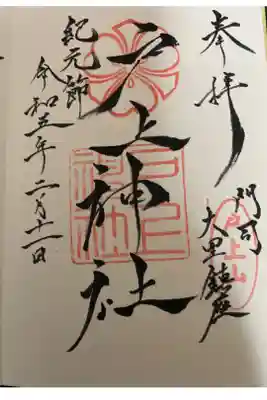 奉拝
門司
大里鎮座
戸上山
戸上神社
戸上神社
紀元節
令和五年二月十一日